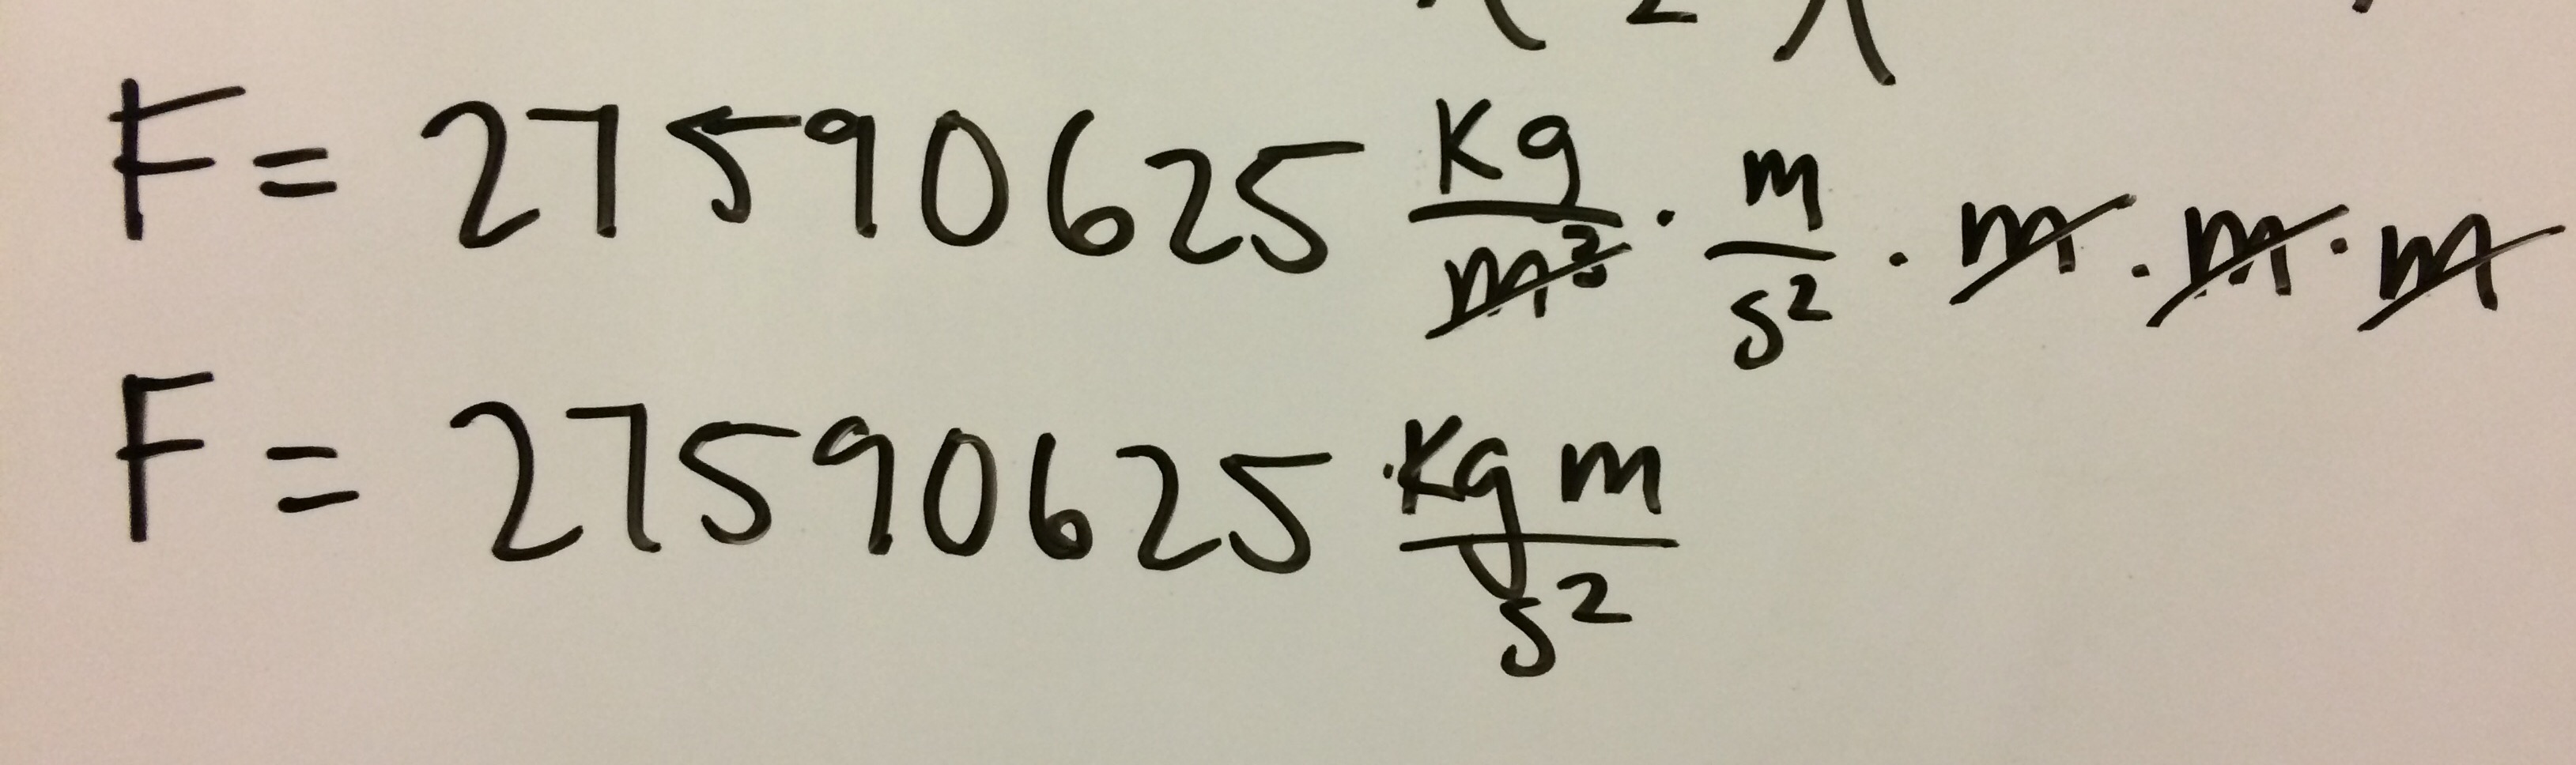 F = 27590625 Kg/m³ · m/s² · m · m · m
F = 27590625 · Kg m/s²